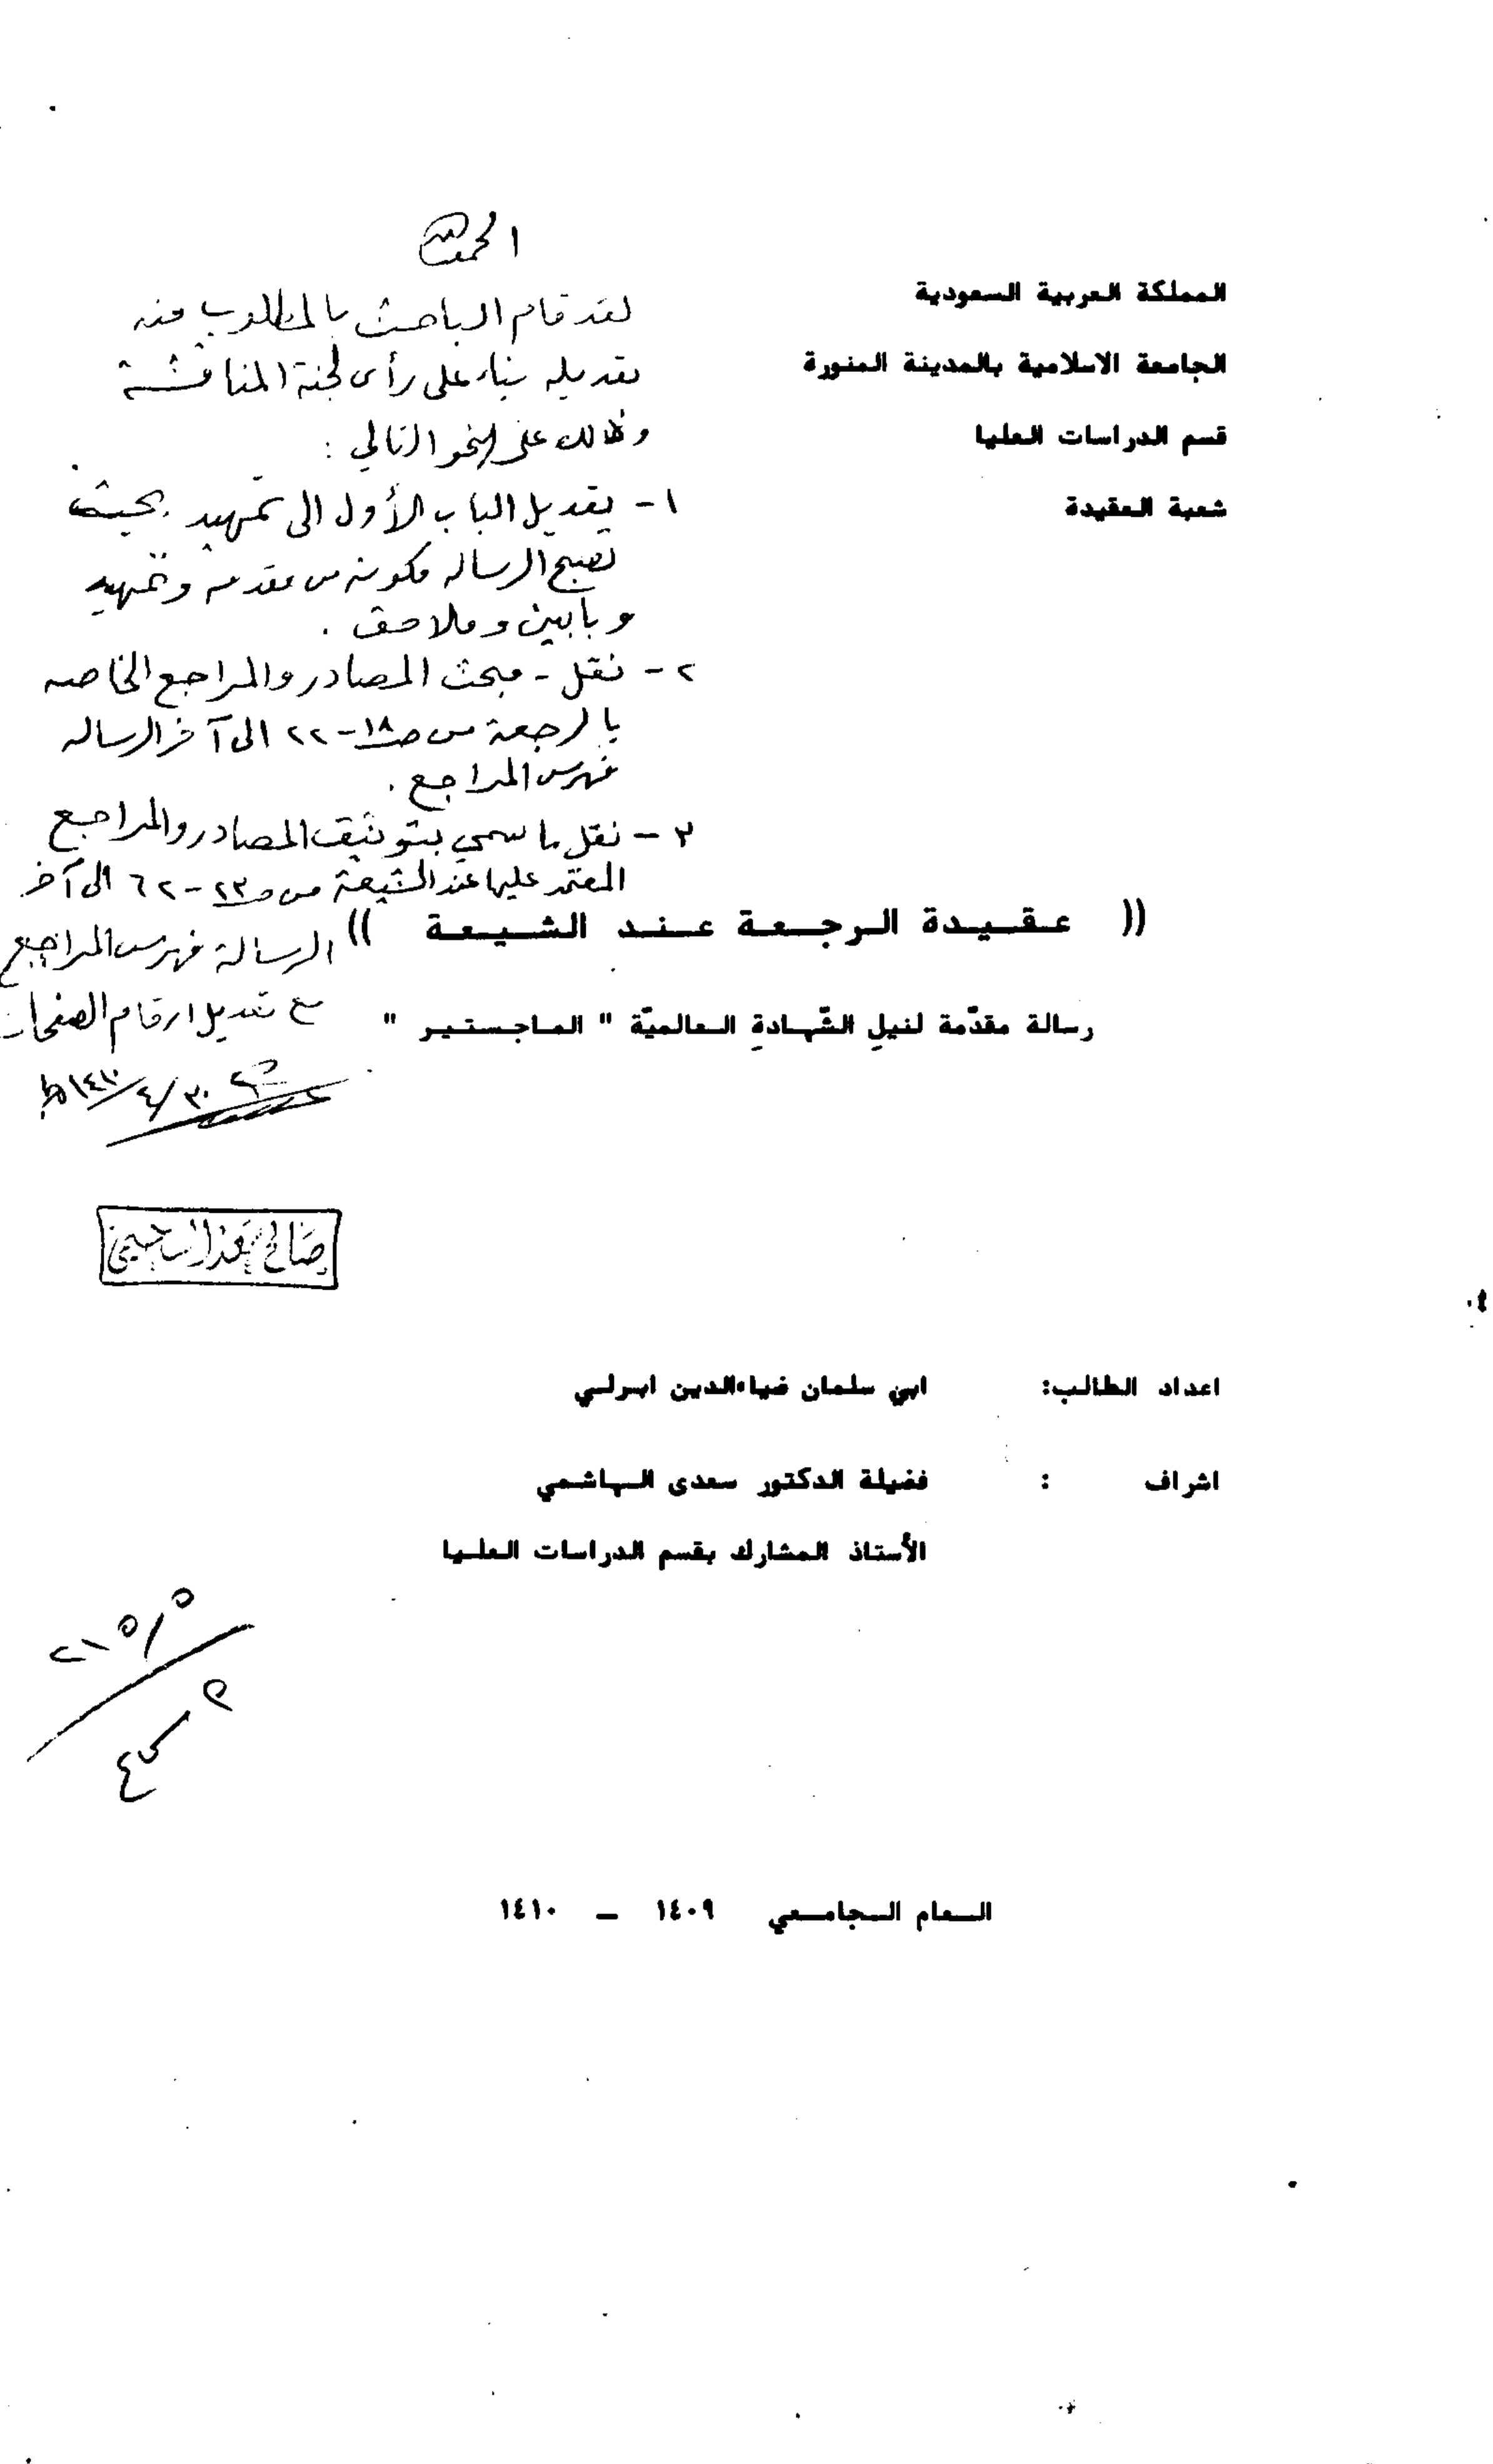 المملكة العربية السعودية
الجامعة الاسلامية بالمدينة المنورة
قسم الدراسات العليا
شعبة العقيدة
الحمد لله
لقد قام الباحث بالمطلوب منه
تعديله بناء على رأى لجنة المناقشة
وذلك على النحو التالي :
١- تعديل الباب الأول الى تمهيد بحيث
تصبح الرساله مكونه من مقدمه وتمهيد
وبابين وملاحق .
٢- نقل - مبحث المصادر والمراجع الخاصه
بالرجعة من ص١٨-٢٢ الى آخر الرساله
فهرس المراجع .
٣- نقل ما سمي بتوثيق المصادر والمراجع
المعتمد عليها عند الشيعة من ص٢٣-٦٢ الى آخر
الرسالة فهرس المراجع
مع تعديل ارقام الصفحات
٣٠/٤/١٤١٠ھ
(( عـقـيـدة الـرجـعـة عـنـد الشـيـعـة ))
رسالة مقدّمة لنيلِ الشّهادةِ العالميّة " الماجستير "
صالح
اعداد الطالب: ابي سلمان ضياءالدين ابرلي
اشراف : فضيلة الدكتور سعدى الهاشمي
الأستاذ المشارك بقسم الدراسات العليا
العام الجامعي ١٤٠٩ – ١٤١٠